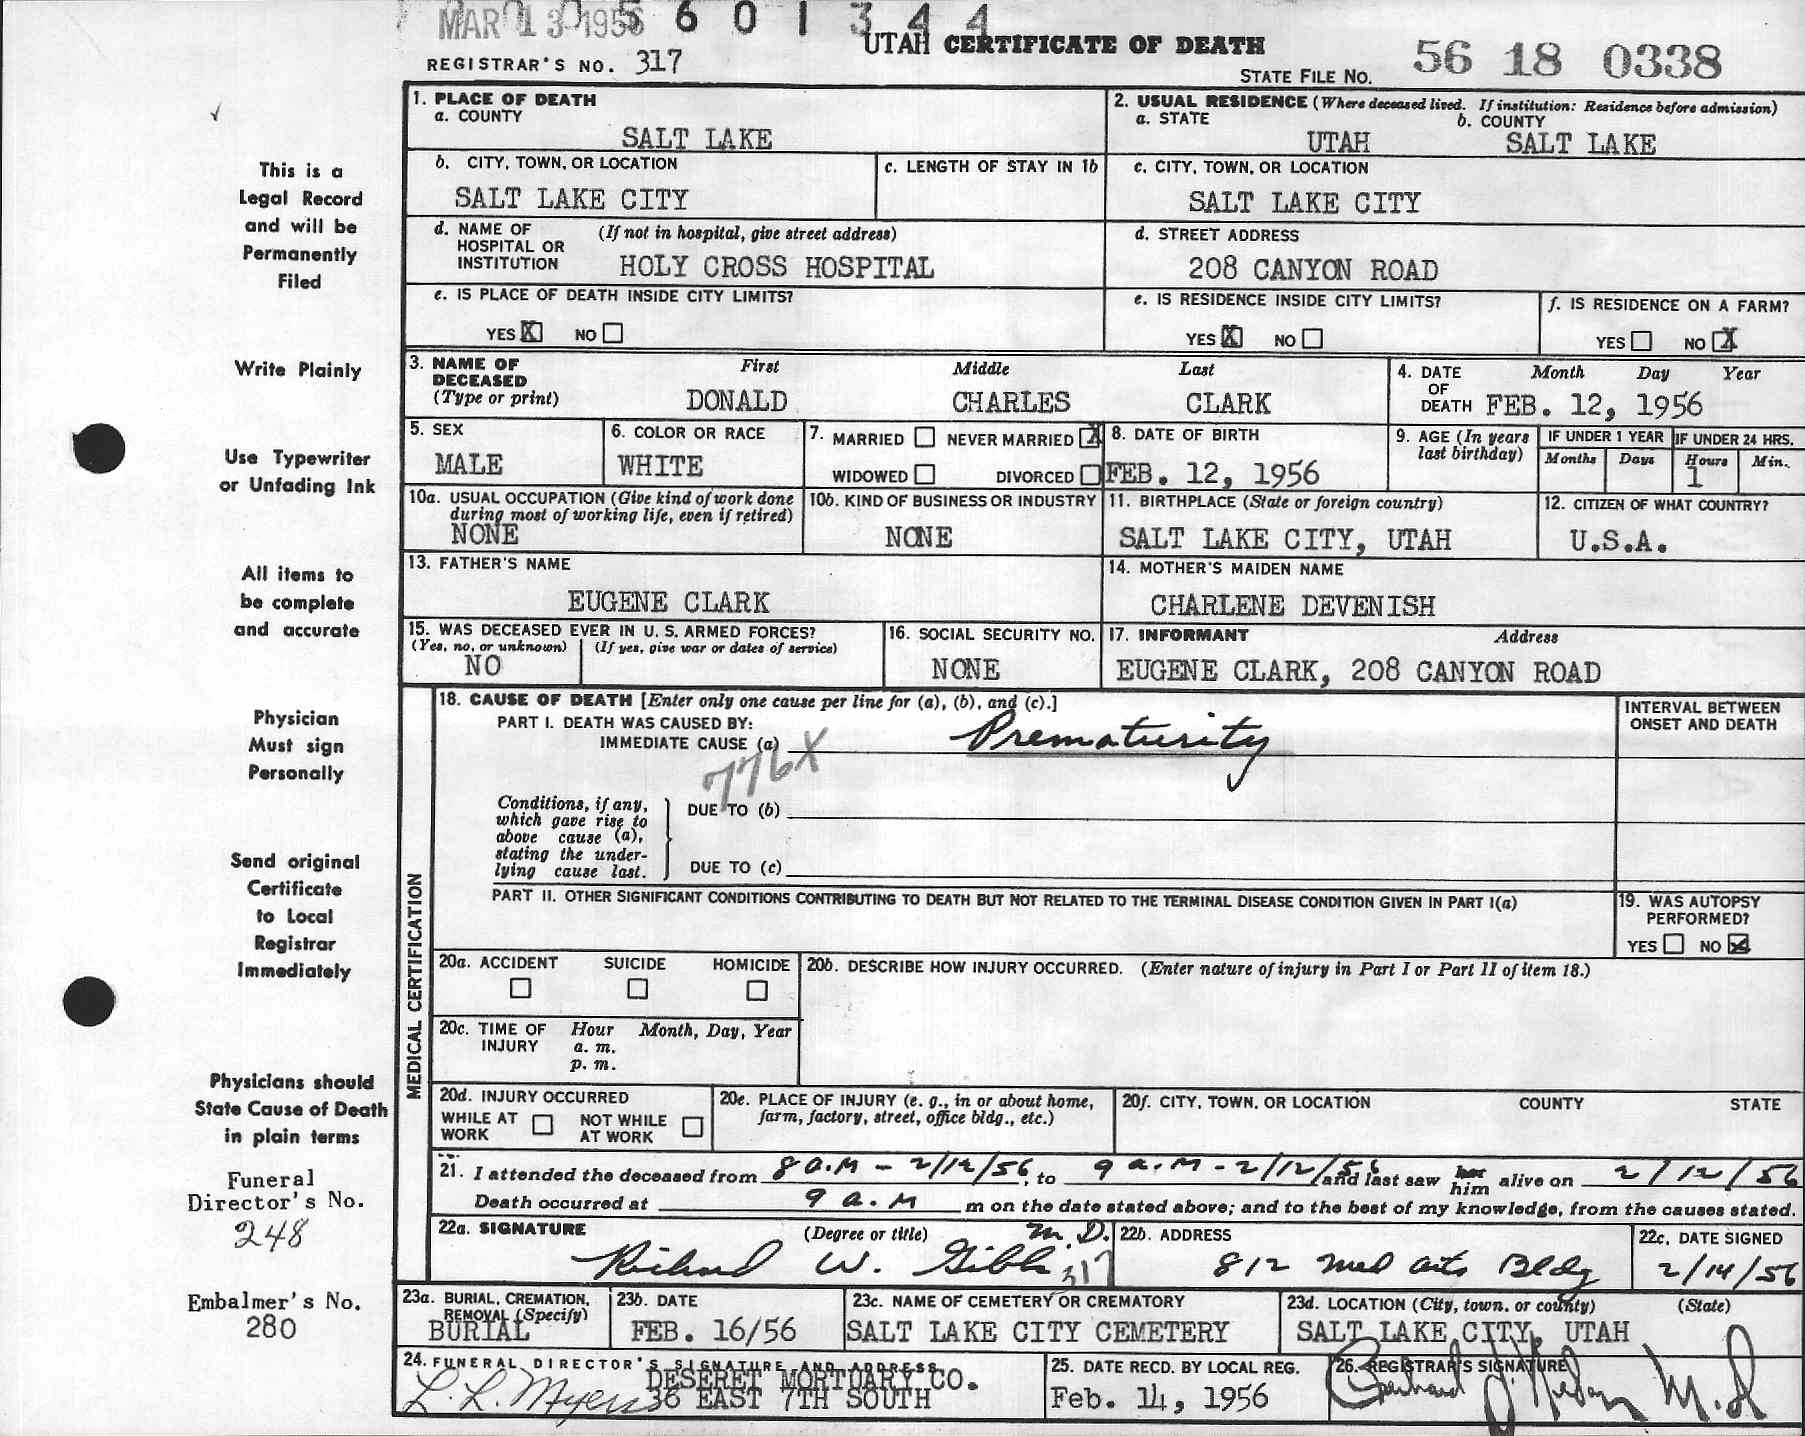 MAR 13 1956 5 6 0 1 3 4 4
UTAH CERTIFICATE OF DEATH
REGISTRAR'S NO. 317
STATE FILE NO. 56 18 0338
1. PLACE OF DEATH
a. COUNTY
SALT LAKE
2. USUAL RESIDENCE (Where deceased lived. If institution: Residence before admission)
a. STATE b. COUNTY
UTAH SALT LAKE
b. CITY, TOWN, OR LOCATION
SALT LAKE CITY
c. LENGTH OF STAY IN 1b
c. CITY, TOWN, OR LOCATION
SALT LAKE CITY
d. NAME OF HOSPITAL OR INSTITUTION (If not in hospital, give street address)
HOLY CROSS HOSPITAL
d. STREET ADDRESS
208 CANYON ROAD
e. IS PLACE OF DEATH INSIDE CITY LIMITS?
YES X NO
e. IS RESIDENCE INSIDE CITY LIMITS?
YES X NO
f. IS RESIDENCE ON A FARM?
YES NO X
3. NAME OF DECEASED (Type or print)
First Middle Last
DONALD CHARLES CLARK
4. DATE OF DEATH Month Day Year
FEB. 12, 1956
5. SEX
MALE
6. COLOR OR RACE
WHITE
7. MARRIED NEVER MARRIED X
WIDOWED DIVORCED
8. DATE OF BIRTH
FEB. 12, 1956
9. AGE (In years last birthday)
IF UNDER 1 YEAR IF UNDER 24 HRS.
Months Days Hours Min.
1
10a. USUAL OCCUPATION (Give kind of work done during most of working life, even if retired)
NONE
10b. KIND OF BUSINESS OR INDUSTRY
NONE
11. BIRTHPLACE (State or foreign country)
SALT LAKE CITY, UTAH
12. CITIZEN OF WHAT COUNTRY?
U.S.A.
13. FATHER'S NAME
EUGENE CLARK
14. MOTHER'S MAIDEN NAME
CHARLENE DEVENISH
15. WAS DECEASED EVER IN U. S. ARMED FORCES?
(Yes, no, or unknown) (If yes, give war or dates of service)
NO
16. SOCIAL SECURITY NO.
NONE
17. INFORMANT Address
EUGENE CLARK, 208 CANYON ROAD
MEDICAL CERTIFICATION
18. CAUSE OF DEATH [Enter only one cause per line for (a), (b), and (c).]
PART I. DEATH WAS CAUSED BY:
IMMEDIATE CAUSE (a) Prematurity
776X
INTERVAL BETWEEN ONSET AND DEATH
Conditions, if any, which gave rise to above cause (a), stating the underlying cause last.
DUE TO (b)
DUE TO (c)
PART II. OTHER SIGNIFICANT CONDITIONS CONTRIBUTING TO DEATH BUT NOT RELATED TO THE TERMINAL DISEASE CONDITION GIVEN IN PART I(a)
19. WAS AUTOPSY PERFORMED?
YES NO X
20a. ACCIDENT SUICIDE HOMICIDE
20b. DESCRIBE HOW INJURY OCCURRED. (Enter nature of injury in Part I or Part II of item 18.)
20c. TIME OF INJURY Hour Month, Day, Year
a. m.
p. m.
20d. INJURY OCCURRED
WHILE AT WORK NOT WHILE AT WORK
20e. PLACE OF INJURY (e. g., in or about home, farm, factory, street, office bldg., etc.)
20f. CITY, TOWN, OR LOCATION COUNTY STATE
21. I attended the deceased from 8 a.m - 2/12/56, to 9 a.m - 2/12/56 and last saw her him alive on 2/12/56
Death occurred at 9 a.m m on the date stated above; and to the best of my knowledge, from the causes stated.
22a. SIGNATURE (Degree or title) M.D.
Richard W. Gibbs 317
22b. ADDRESS
812 Med Arts Bldg
22c. DATE SIGNED
2/14/56
23a. BURIAL, CREMATION, REMOVAL (Specify)
BURIAL
23b. DATE
FEB. 16/56
23c. NAME OF CEMETERY OR CREMATORY
SALT LAKE CITY CEMETERY
23d. LOCATION (City, town, or county) (State)
SALT LAKE CITY, UTAH
24. FUNERAL DIRECTOR'S SIGNATURE AND ADDRESS
L. L. Myers
DESERET MORTUARY CO.
36 EAST 7TH SOUTH
25. DATE RECD. BY LOCAL REG.
Feb. 14, 1956
26. REGISTRAR'S SIGNATURE
M.D
This is a
Legal Record
and will be
Permanently
Filed
Write Plainly
Use Typewriter
or Unfading Ink
All items to
be complete
and accurate
Physician
Must sign
Personally
Send original
Certificate
to Local
Registrar
Immediately
Physicians should
State Cause of Death
in plain terms
Funeral
Director's No.
248
Embalmer's No.
280